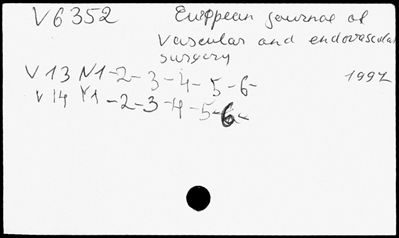 V6352 European journal of
vascular and endovascular
surgery
V13 N1-2-3-4-5-6- 1997
V14 N1-2-3-4-5-6-